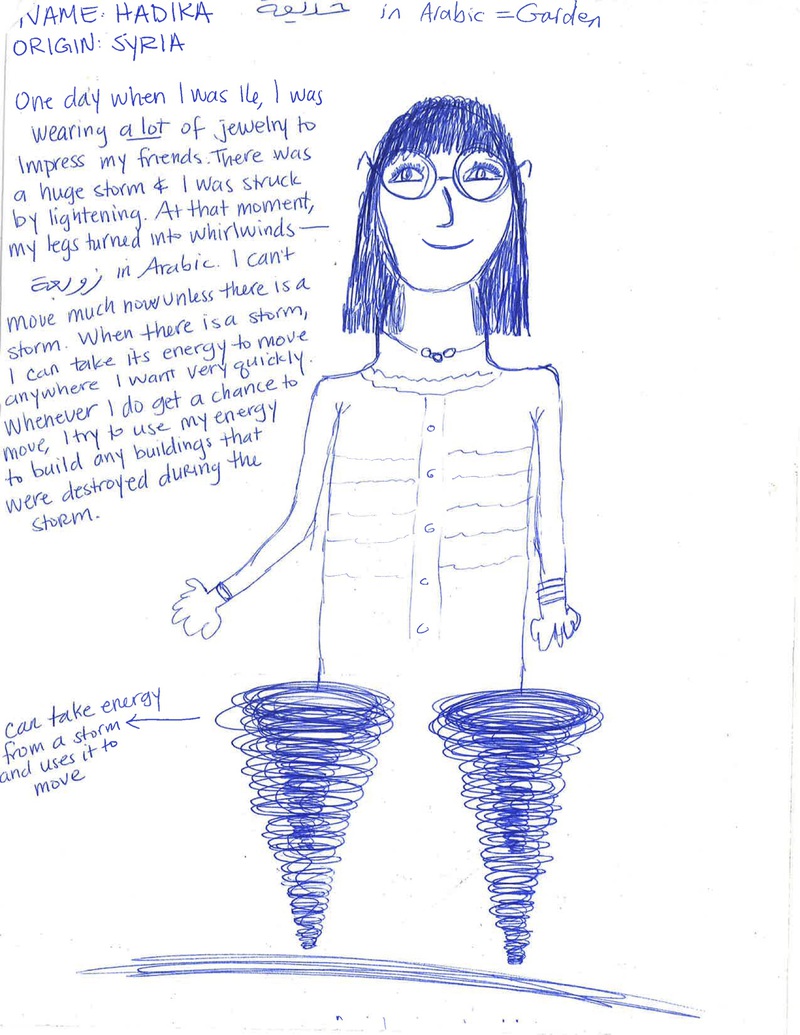 NAME: HADIKA حديقة in Arabic = Garden
ORIGIN: SYRIA
One day when I was 16, I was
wearing a lot of jewelry to
impress my friends. There was
a huge storm & I was struck
by lightening. At that moment,
my legs turned into whirlwinds —
زوبعة in Arabic. I can't
move much now unless there is a
storm. When there is a storm,
I can take its energy to move
anywhere I want very quickly.
Whenever I do get a chance to
move, I try to use my energy
to build any buildings that
were destroyed during the
storm.
can take energy
from a storm
and uses it to
move